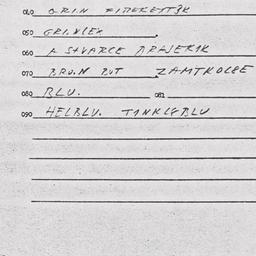 040 GRIN
050 GRINLEX
060 A SVARCE BRAJERIK
070 BRUN BUT ZAMTKOLBE
080 BLU. 081
090 HELBLU. TINKLGBLU